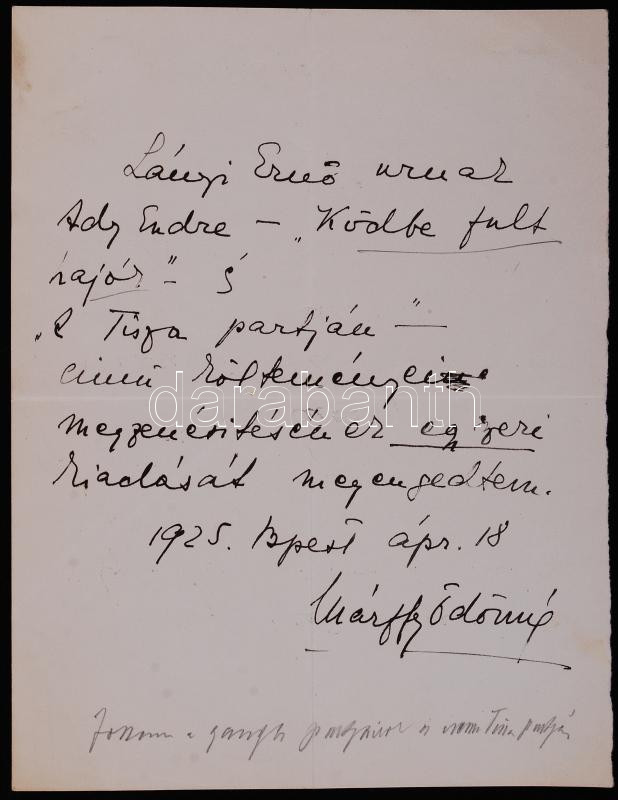 Lányi Ernő urnak
Ady Endre – „Ködbe fult
hajók" – s
„A Tisza partján" –
cimű költeményei
megzenésitésének egyszeri
kiadását megengedtem.
1925. Bpest ápr. 18
Márffy Ödönné
a partjáról Tisza partján
darabanth